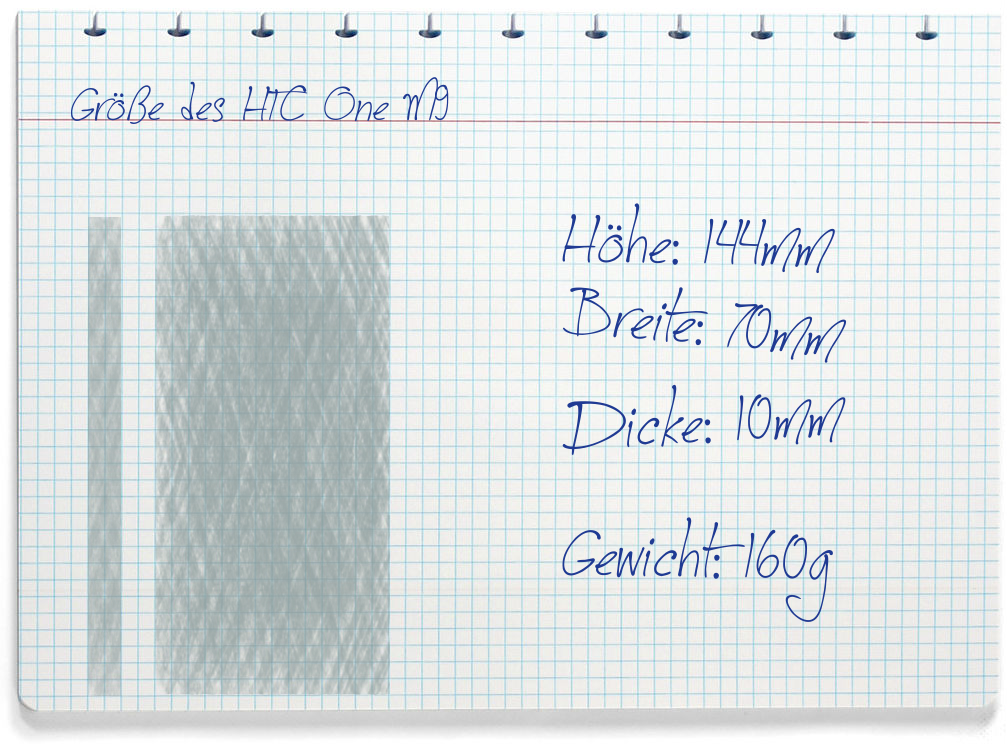 Größe des HTC One M9
Höhe: 144mm
Breite: 70mm
Dicke: 10mm
Gewicht: 160g